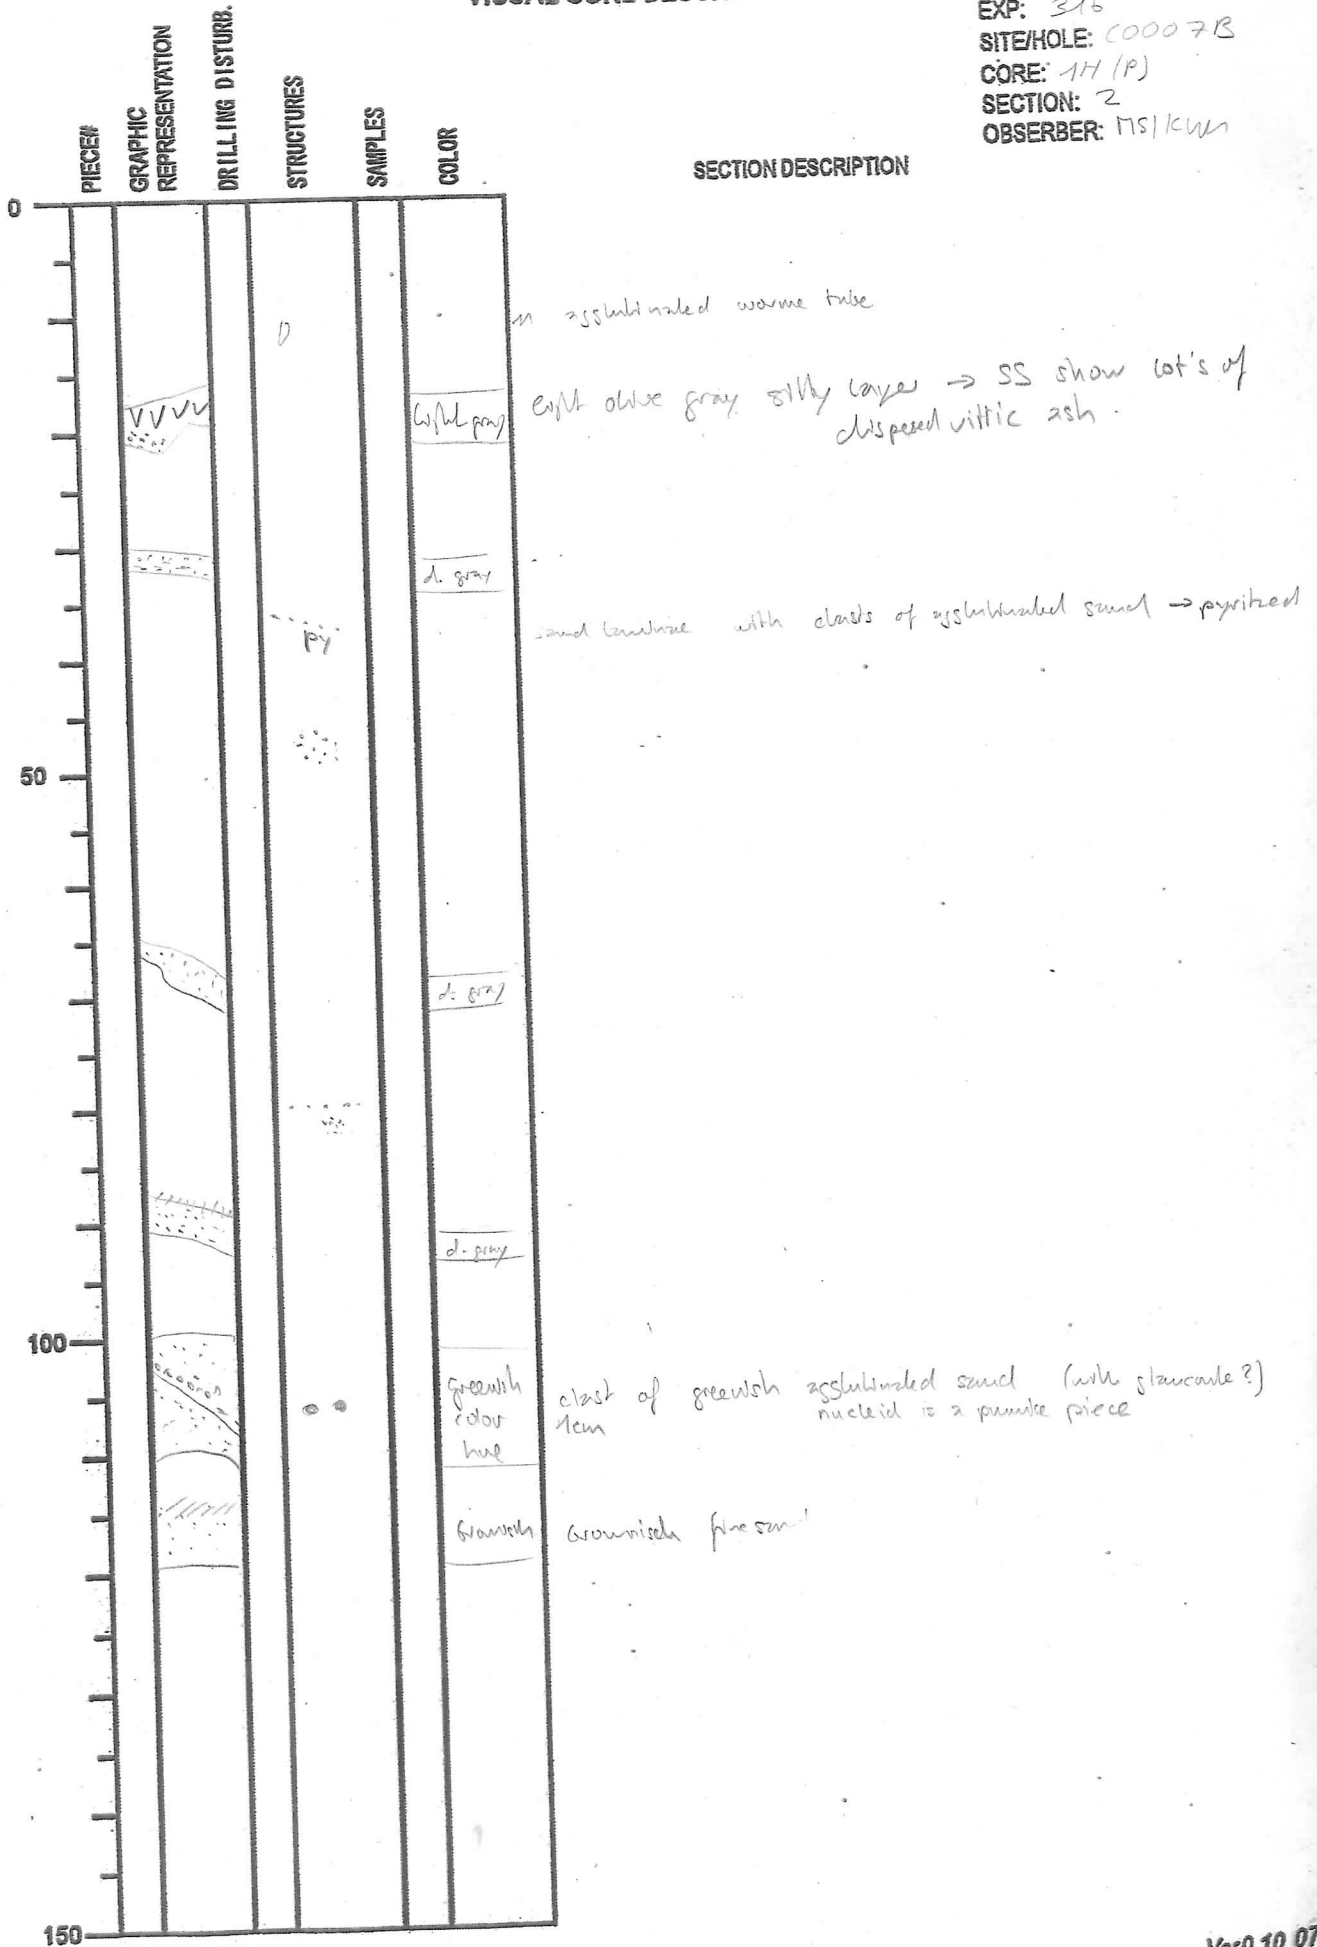 EXP: 316
SITE/HOLE: C0007B
CORE: 1H (P)
SECTION: 2
OBSERBER: MS/KUM
PIECE#
GRAPHIC REPRESENTATION
DRILLING DISTURB.
STRUCTURES
SAMPLES
COLOR
SECTION DESCRIPTION
0
agglutinated worme tube
VVVV
light gray
light olive gray silty layer → SS show lot's of
dispersed vittic ash.
d. gray
sand laminae with clasts of agglutinated sand → pyritized
py
50
d. gray
d. gray
100
greenish
color
hue
clast of greenish agglutinated sand (with glauconite?)
1cm nucleid is a pumice piece
brownish
brownisch fine sand
150
Ver0.10 07